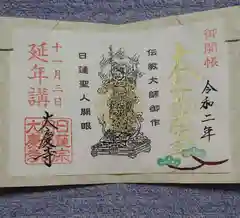 御開帳
令和二年
伝教大師御作
日蓮聖人開眼
十一月三日
延年講
大慶寺
日蓮宗
大慶寺